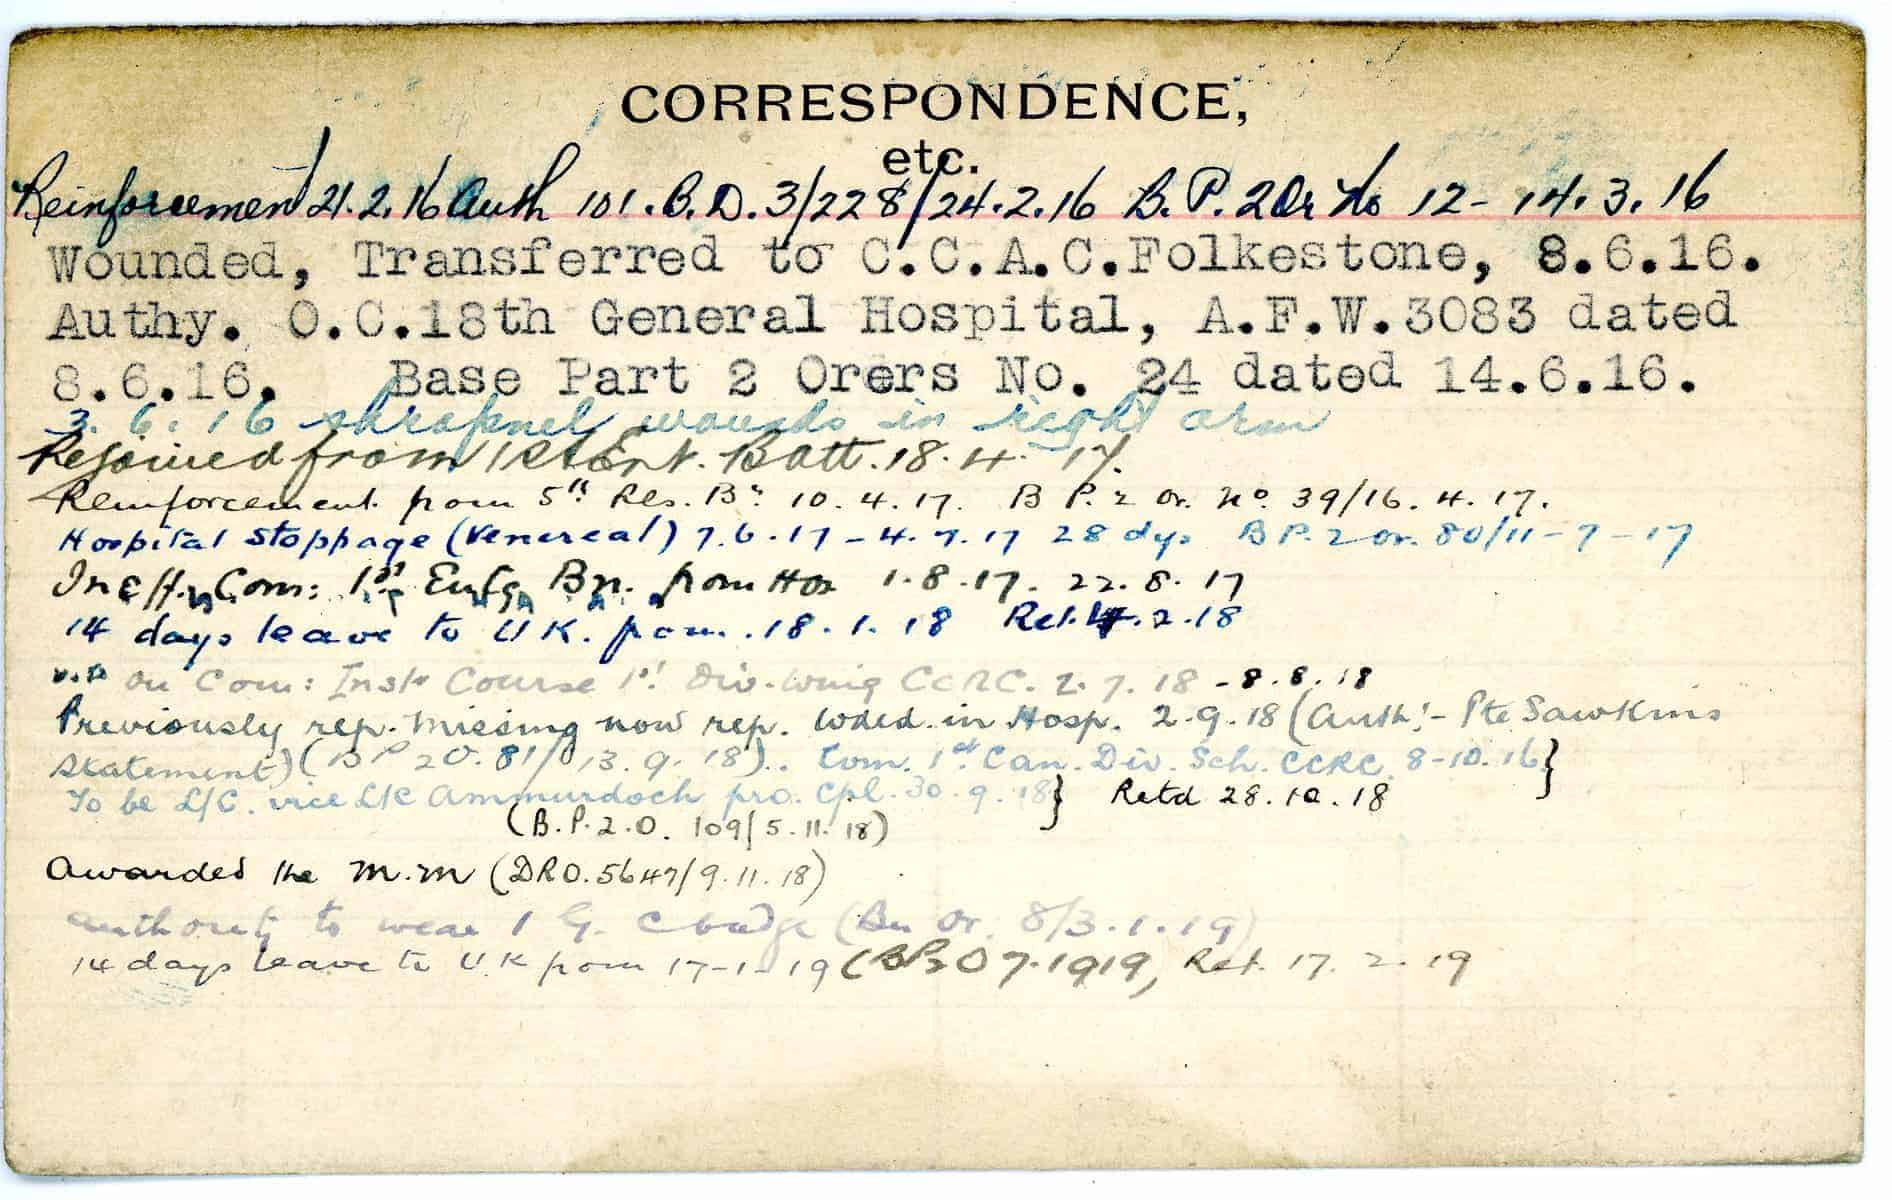 CORRESPONDENCE,
etc.
Reinforcement 21.2.16 Auth 101.B.D.3/228/24.2.16 B.P.2 Or No 12-14.3.16
Wounded, Transferred to C.C.A.C.Folkestone, 8.6.16.
Authy. O.C.18th General Hospital, A.F.W.3083 dated
8.6.16. Base Part 2 Orers No. 24 dated 14.6.16.
3.6.16 shrapnel wounds in right arm
Rejoined from 1st Ent. Batt. 18.4.17.
Reinforcement from 5th Res. Bn 10.4.17. B P. 2 Or. No. 39/16.4.17.
Hospital Stoppage (Venereal) 7.6.17 - 4.7.17 28 dys B P. 2 or. 80/11-7-17
Ineff. Com: 1st Bn. from Hos 1.8.17. 22.8.17
14 days leave to U K. from. 18.1.18 Ret. 4.2.18
on Com: Instr Course 1st Div. Wing CCRC. 2.7.18 - 8.8.18
Previously rep. missing now rep. Wded. in Hosp. 2.9.18 (Auth:- Pte Sawkins
Statement) (B P 2 O. 81/13.9.18). Com. 1st Can. Div. Sch. CCRC. 8-10.16}
To be L/C. vice L/C Ammurdoch pro. Cpl. 30.9.18} Retd 28.10.18
(B.P.2.O. 109/5.11.18)
Awarded the M.M (DRO.5647/9.11.18)
Authority to wear 1 G. C badge (Bn Or. 8/3.1.19)
14 days leave to U K from 17-1-19 (BP2O 7.1919, Ret. 17.2.19